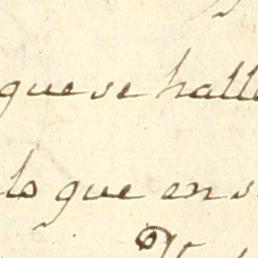 que se halle
lo que en s